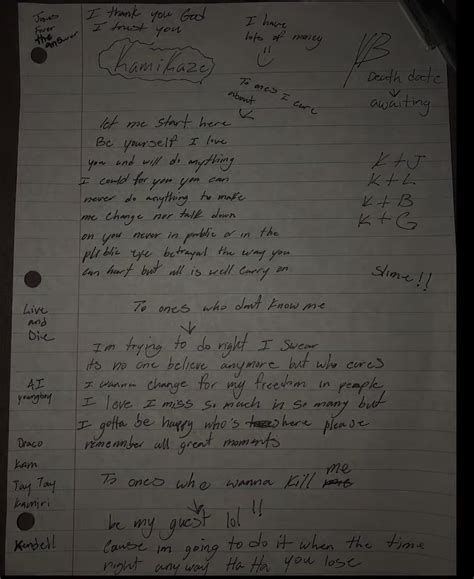 Jesus
Ever
the answer
I thank you God
I trust you
I have
lots of money
kamikaze
Death date
awaiting
To ones I care
about
let me start here
Be yourself I love
you and will do anything
I could for you you can
never do anything to make
me change nor talk down
on you never in public or in the
public eye betrayal the way you
can hurt but all is well carry on
K+J
K+L
K+B
K+G
Slime!!
To ones who dont know me
Live
and
Die
Im trying to do right I swear
its no one believe anymore but who cares
I wanna change for my freedom in people
I love I miss so much in so many but
I gotta be happy who's here please
remember all great moments
AI
youngboy
Draco
Kam
Tay Tay
Kamiri
Kendell
To ones who wanna kill me
be my guest lol!!
Cause im going to do it when the time
right anyway Ha Ha you lose